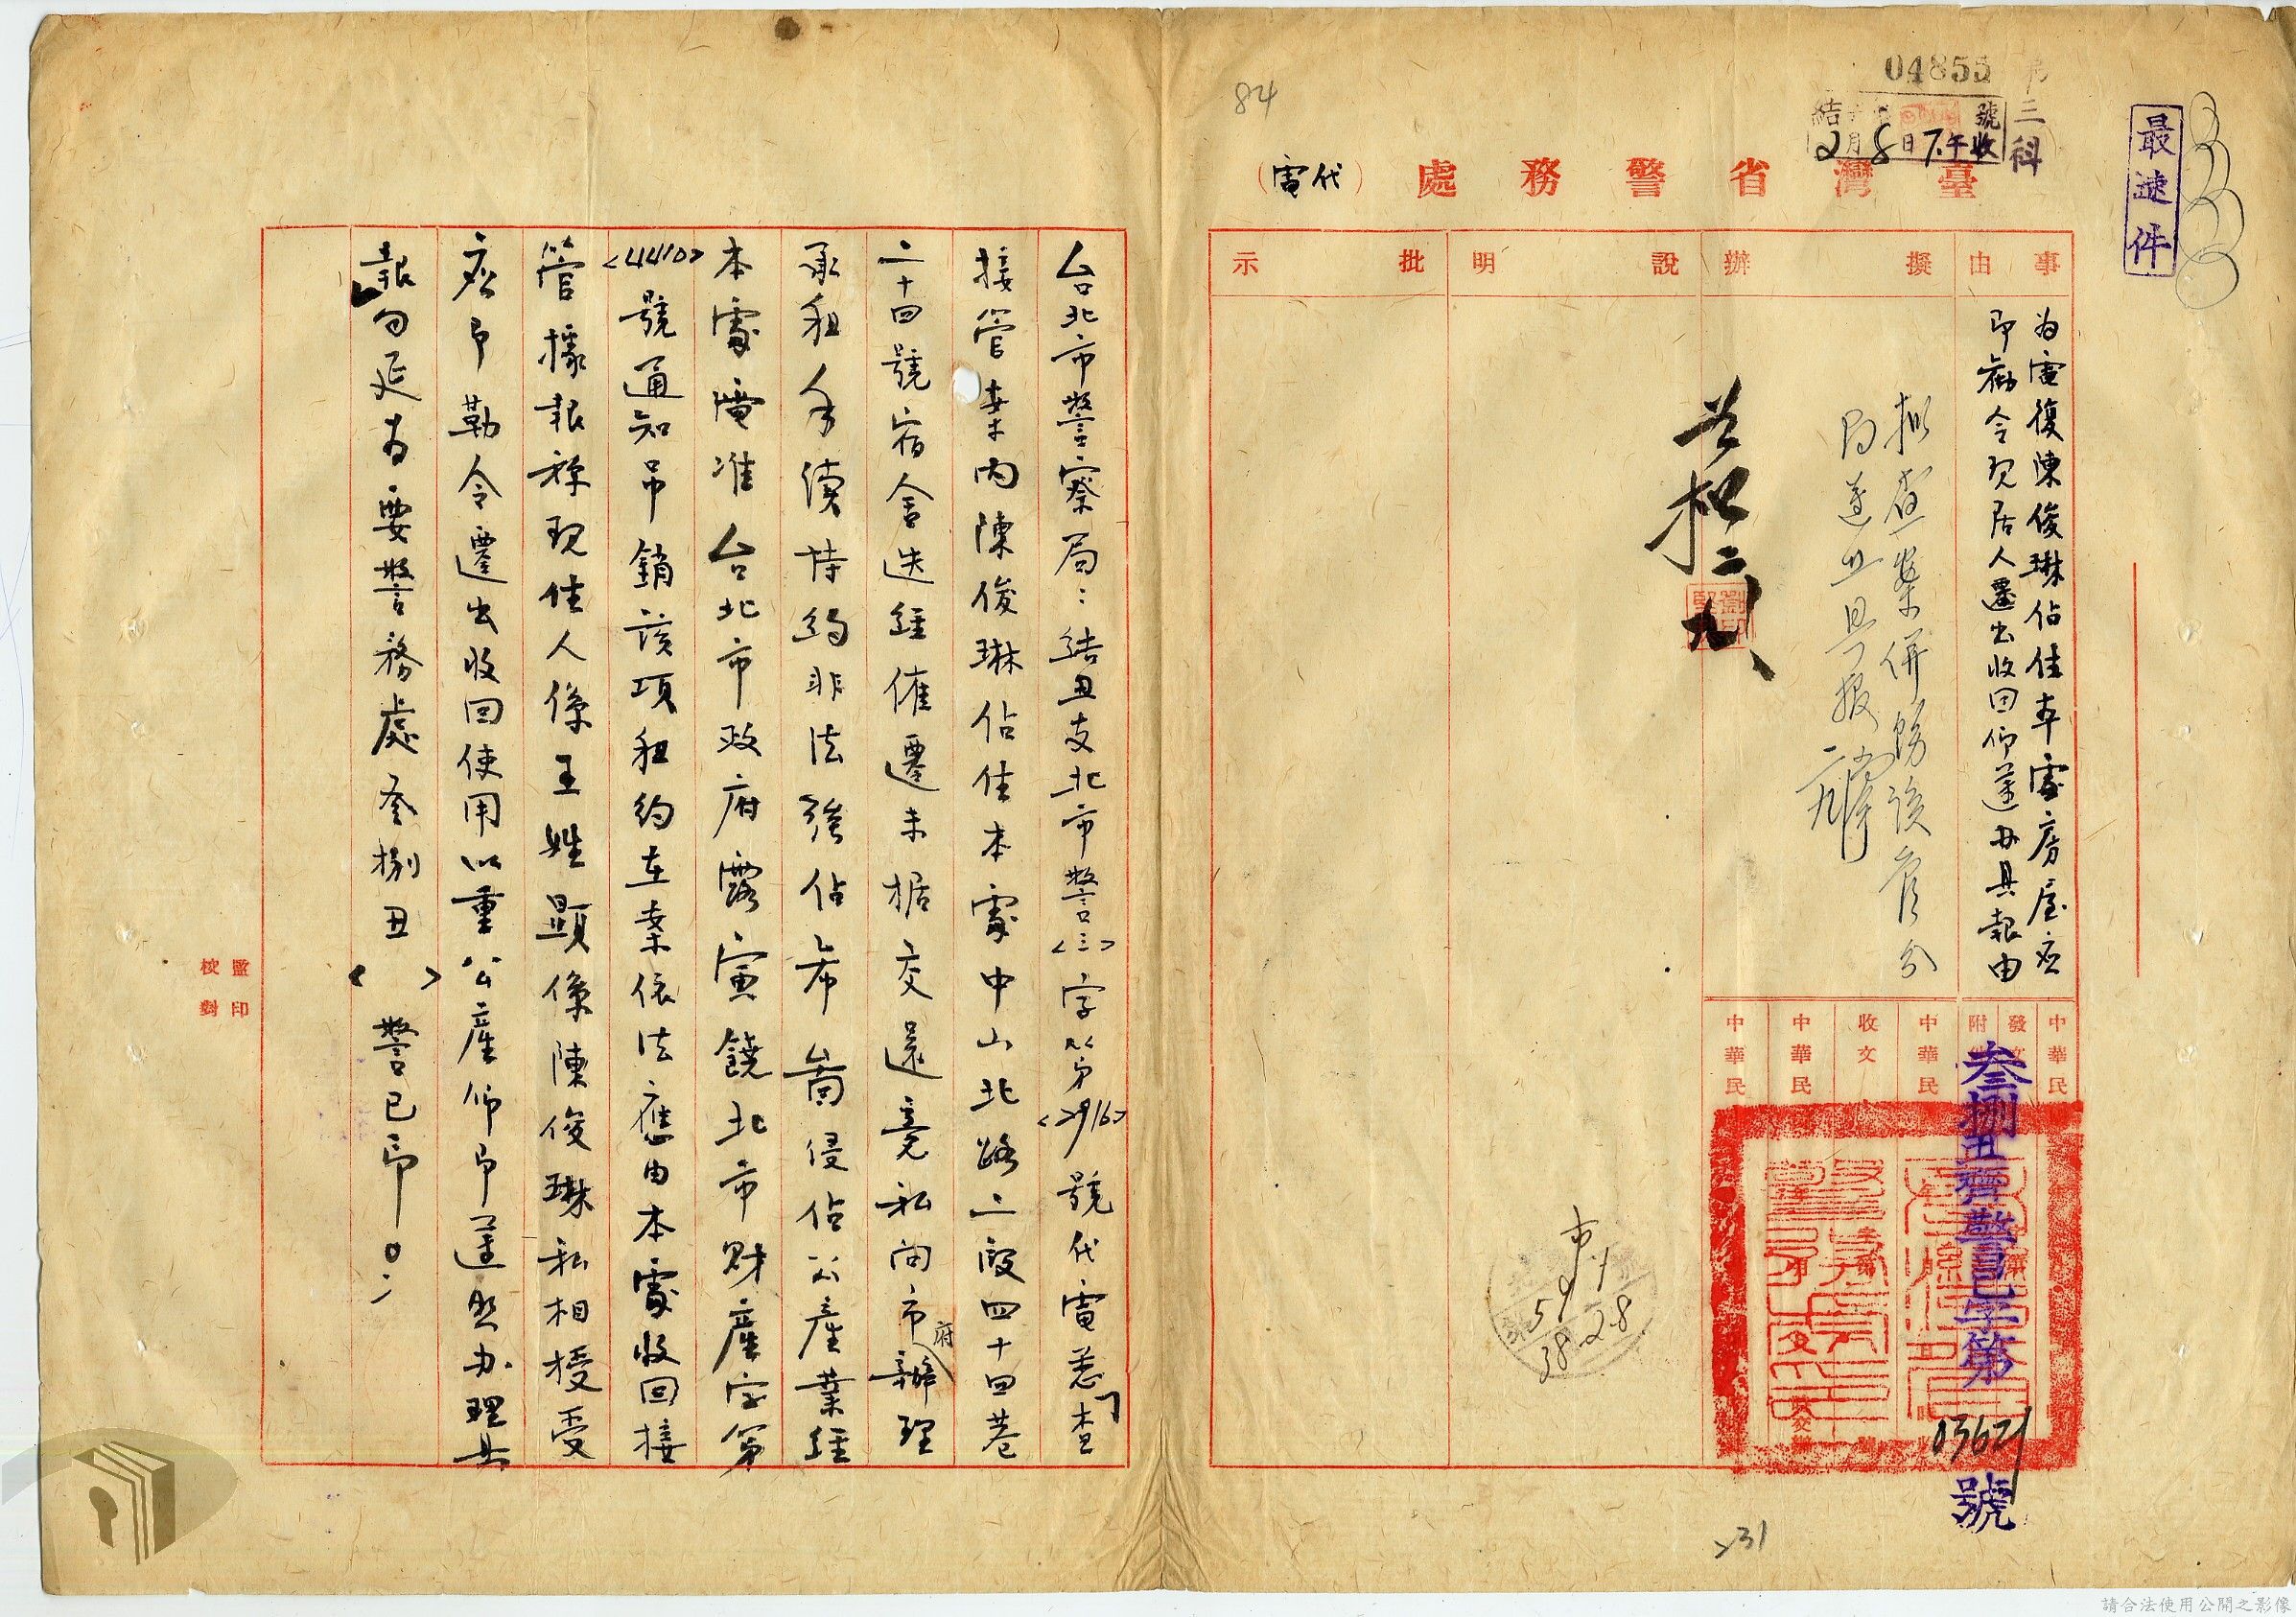 04855
第三科
2月8日下午收
最速件
84
臺灣省警務處（代電）
事由
擬辦
說明
批示
為電復陳俊琳佔住本處房屋應
即勒令現居人遷出收回仰遵办具報由
拟查案併飭該管分
局遵照具报
二、九
中華民
發文
附
中華民
收文
中華民
中華民
叁捌丑齊警巳字第
03621
號
市
59
38.2.8
231
台北市警察局：結丑支北市警<三>字第<2916>號代電悉「查
接管案內陳俊琳佔住本處中山北路二段四十四巷
二十四號宿舍迭經催遷未据交還竟私向市府辦理
承租手续持约非法強佔希啚侵佔公產業經
本處電准台北市政府露寅饒北市財產字第
<4410>號通知吊銷該項租約在案依法應由本處收回接
管據報称現住人係王姓顯係陳俊琳私相授受
应即勒令遷出收回使用以重公產仰即遵照办理具
報勿延為要警務處叁捌丑< >警巳印。
監印
校對
請合法使用公開之影像